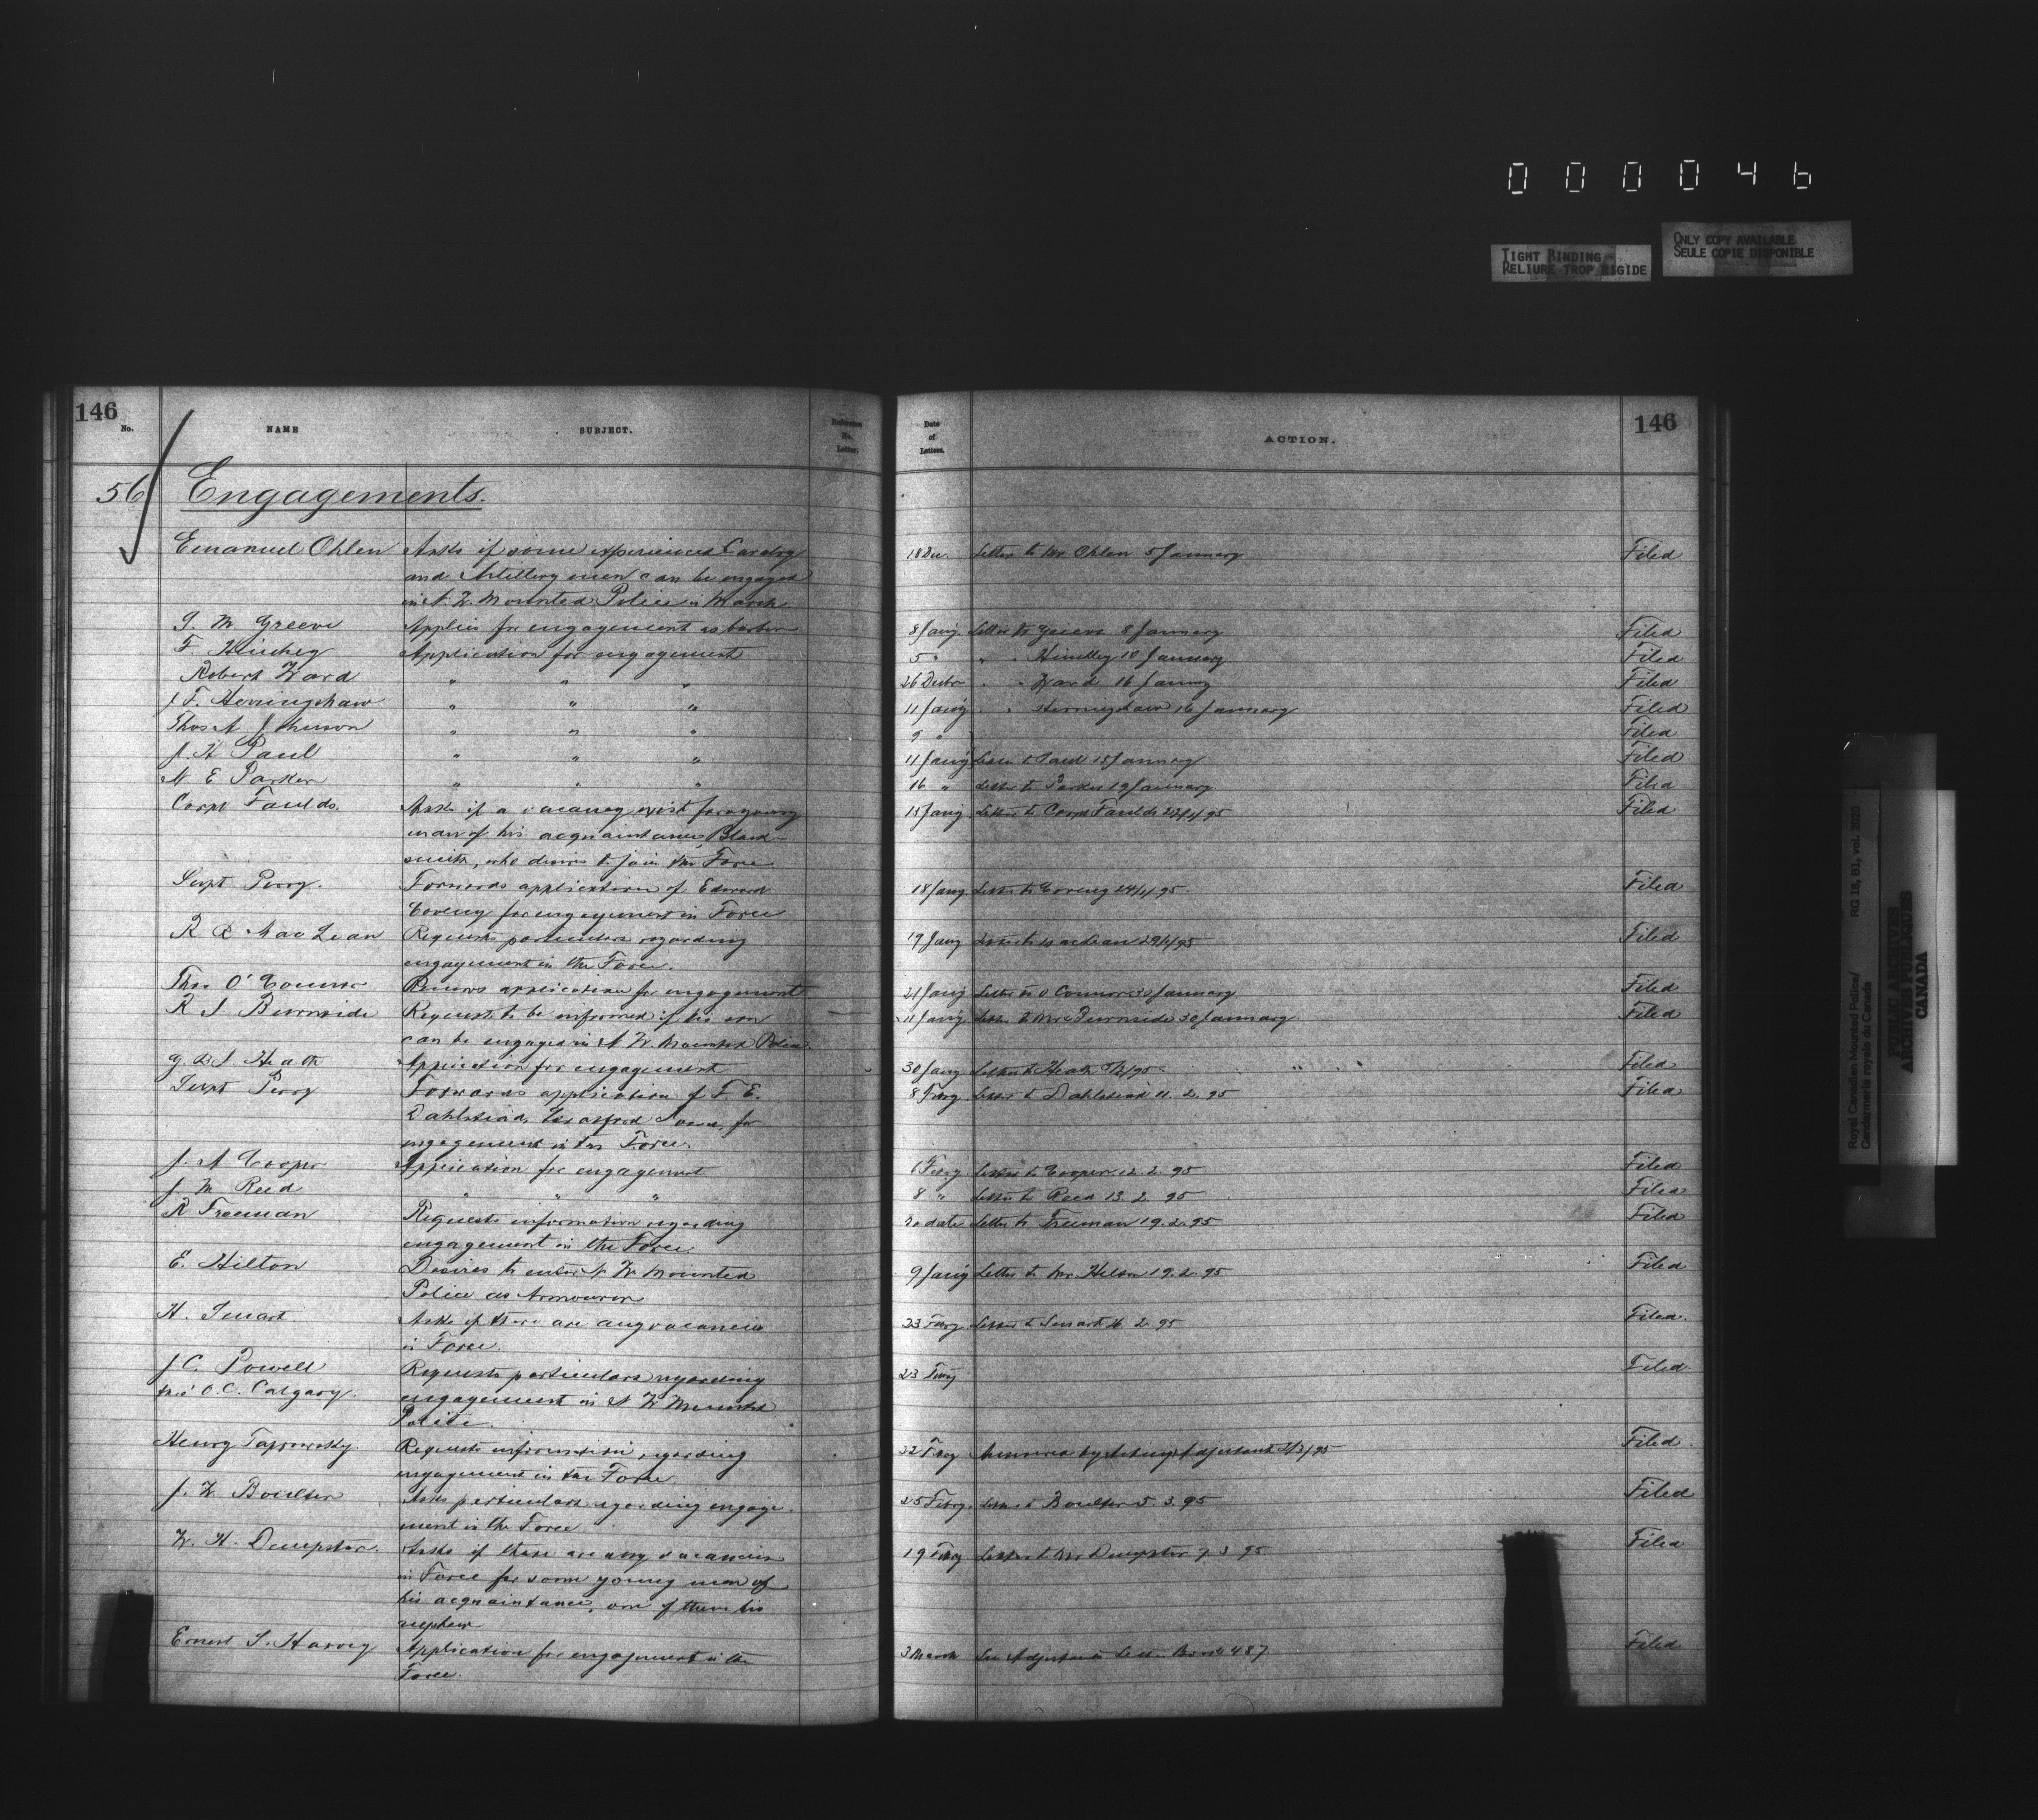 000046
TIGHT BINDING
RELIURE TROP RIGIDE
ONLY COPY AVAILABLE
SEULE COPIE DISPONIBLE
146
No.
NAME
SUBJECT.
Reference No. Letter.
Date of Letters.
ACTION.
146
56 Engagements.
Emanuel Ohlen Asks if some experienced Cavalry 18 Dec. Letter to Mr. Ohlen 5 January Filed
and Artillery men can be engaged
in N. W. Mounted Police in March
G. M. Greeve Applies for engagement as 8 Jany. Letter to 8 January Filed
F. Application for engagement 5 " " " 10 January Filed
Robert Ward " " " 26 Decbr " " Ward 16 Jany Filed
J F. Herringshaw " " " 11 Jany " " Herringshaw 16 January Filed
Thos A Johnson " " " 9 " Filed
J. H Paul " " " 11 Jany Letter to Paul 15 January Filed
N. E Parker " " " 16 " Letter to Parker 19 January Filed
Corpl Faulds Asks if a vacancy exist for a young 15 Jany Letter to Corpl Faulds 23/1/95 Filed
man of his acquaintance, Black-
smith, who desires to join the Force
Supt Perry. Forwards application of Edward 18 Jany Letter to Coveny 24/1/95. Filed
Coveny for engagement in Force
R R MacLean Requests particulars regarding 19 Jany Letter to MacLean 29/1/95 Filed
engagement in the Force.
Thos O'Connor Renews application for engagement 21 Jany Letter to O'Connor 30 January Filed
R S Burnside Requests to be informed if his son 11 Jany Letter to Mr Burnside 30 January Filed
can be engaged in N W. Mounted Police.
Heath Application for engagement 30 Jany Letter to Heath /95 Filed
Supt Perry Forwards application of F. E. 8 Febry Letter to Dahlstead 11. 2. 95 Filed
Dahlstead, for
engagement in the Force.
J. A Cooper Application for engagement 6 Febry Letter to Cooper 12. 2. 95 Filed
J. M Reed " " " 8 " Letter to Reed 13. 2. 95 Filed
R Freeman Requests information regarding No date Letter to Freeman 19. 2. 95 Filed
engagement in the Force.
E. Hilton Desires to enter N W Mounted 9 Jany Letter to Mr. Hilton 19. 2. 95 Filed
Police as Armourer
H. Smart Asks if there are any vacancies 23 Febry Letter to Smart 2. 95 Filed.
in Force.
J C. Powell Requests particulars regarding 23 Febry Filed
O. C. Calgary. engagement in N W Mounted
Police.
Henry Requests information regarding 22 Febry Answered by Acting Adjutant 2/3/95 Filed
engagement in the Force
J. W Boulter Asks particulars regarding engage- 25 Febry. Letter to Boulter 5. 3. 95 Filed
ment in the Force
W. H. Dempster. Asks if there are any vacancies 19 Febry Letter to Mr Dempster 7. 3. 95 Filed
in Force for some young men of
his acquaintance, one of them his
nephew
Ernest S. Harvey Application for engagement in the 3 March See Adjutant's Book 487 Filed
Force.
Royal Canadian Mounted Police/
Gendarmerie royale du Canada
RG 18, B1, vol. 2020
PUBLIC ARCHIVES
ARCHIVES PUBLIQUES
CANADA